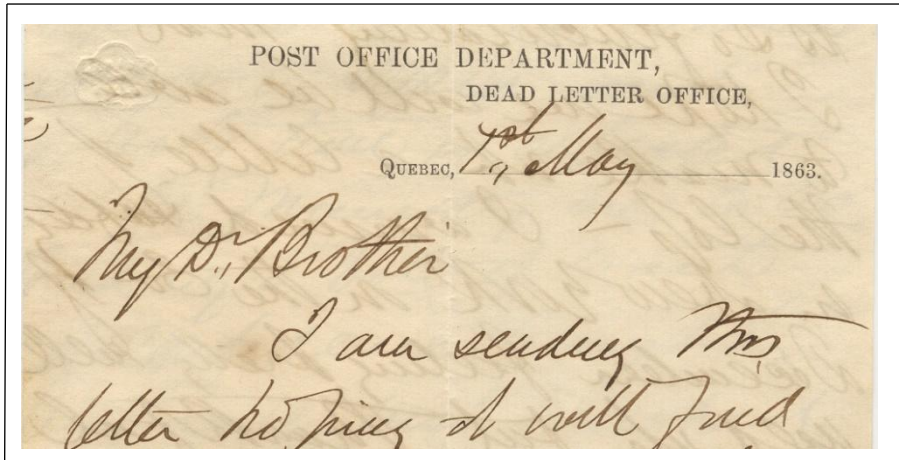 POST OFFICE DEPARTMENT,
DEAD LETTER OFFICE,
QUEBEC, 1st, May 1863.
My Dr. Brother
I am sending this
letter hoping it will find